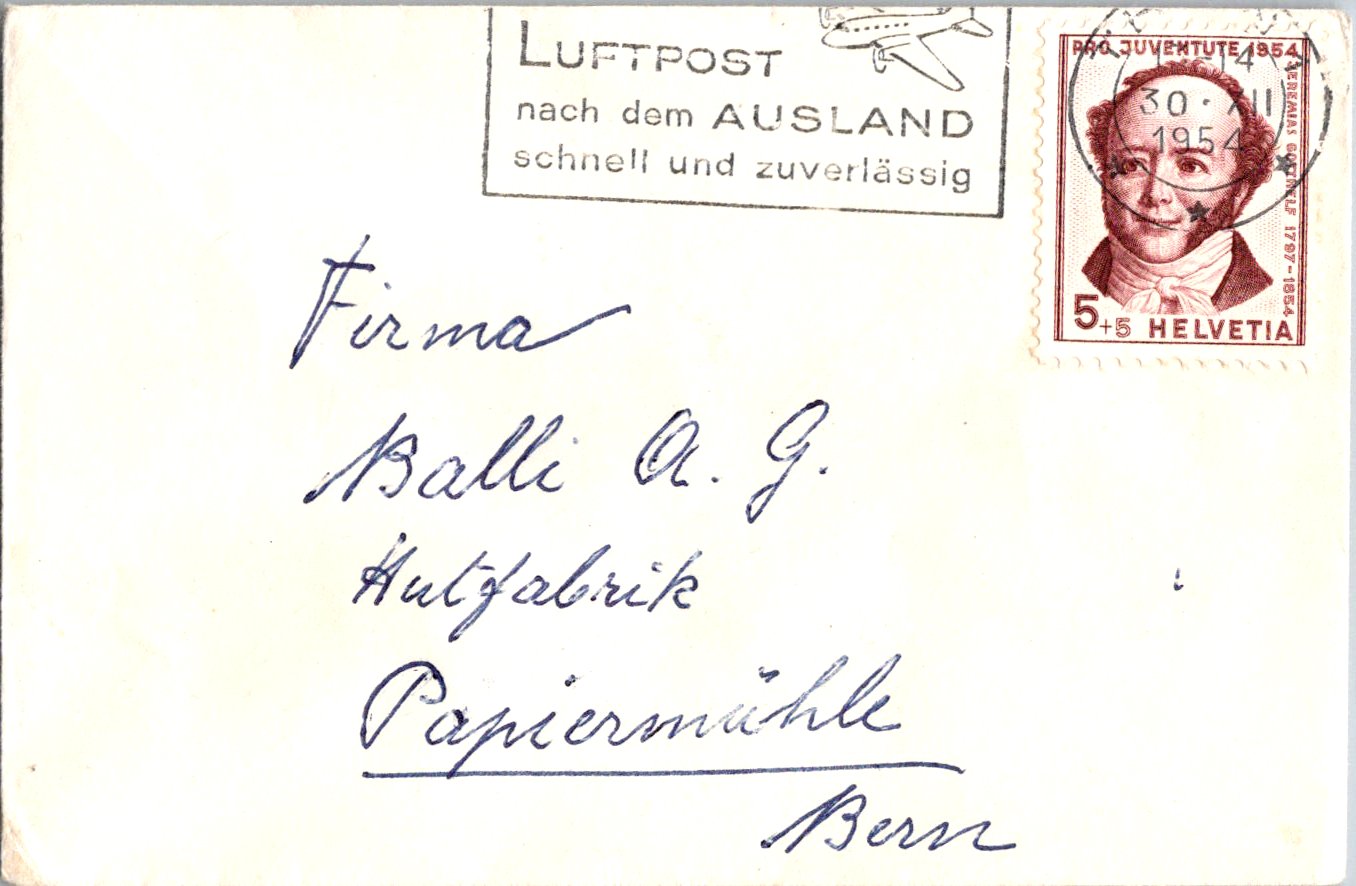 LUFTPOST
nach dem AUSLAND
schnell und zuverlässig
PRO JUVENTUTE 1954
JEREMIAS GOTTHELF 1797-1854
-14
30·XII
1954
5+5 HELVETIA
Firma
Balli A. G.
Hutfabrik
Papiermühle
Bern